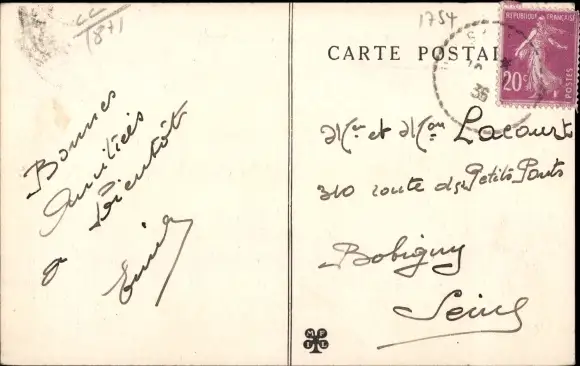 1871
1754
CARTE POSTAL
REPUBLIQUE FRANÇAISE
20c
POSTES
36
Bonnes
Amitiées
a Bientôt
Mr et Mme Lacourt
310 route des Petits Ponts
Bobigny
Seine